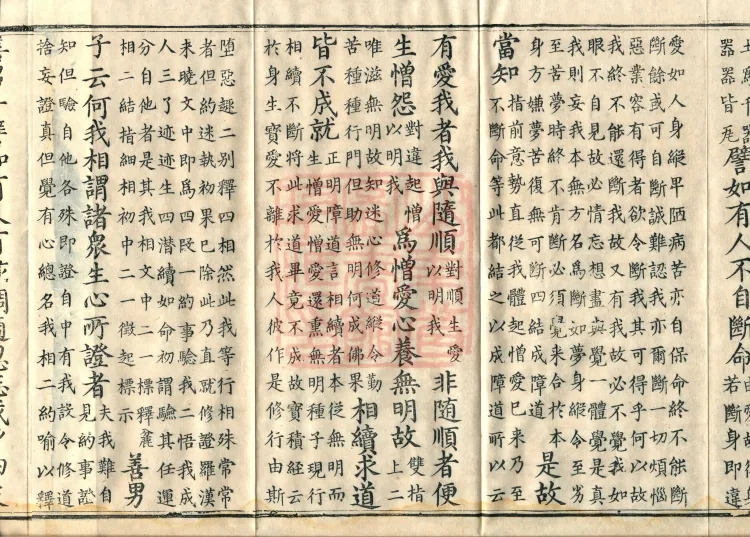 譬如有人不自斷命
愛如人身縱卑陋病苦亦自保命終不能斷
斷餘或可自斷誠難認我亦爾斷一切煩惱
惡業容有得者欲令斷我其可得乎何以故
我終不能還斷我故又有我故必不覺我如
眼不自見故必情忘想盡與覺一體覺是真
我則妄我本無方名爲斷如夢身縱令至劣
至苦夢時終不肯斷必須覺來合於本
身方嫌夢苦復無可斷四結成障道
是故
當知
指前意勢直從我體起憎愛已來乃至
不斷命等此都結之以成障道所以云
有愛我者我與隨順
對順生愛
以明我
非隨順者便
生憎怨
對違起憎
以明我
爲憎愛心養無明故
雙指
上二
唯滋無明故知迷心修道縱令勤
苦種種行門但助無明何成佛果
相續求道
皆不成就
正明障道言相續者本從無明而
生憎愛憎愛還熏無明種子現行
相續不斷將此求道畢竟不成故寶積経云
於身生寶愛不離於我人彼作是修行由斯
墮惡趣二別釋四相然此我等行相殊常常
者但約迷執粗果已除此乃直就修證羅漢
來曉文中即爲四段一約事驗我二悟我成
人三了迹迹生四潛續如命初謂驗其任運
分自他者是其我相文中二一標釋麤
相二結指細相初中二一徵起標示
善男
子云何我相謂諸衆生心所證者
夫我難自
見約事證
知但驗自他各殊即證自中有我設令修道
捨妄證真但覺有心總名我相二約喻以釋